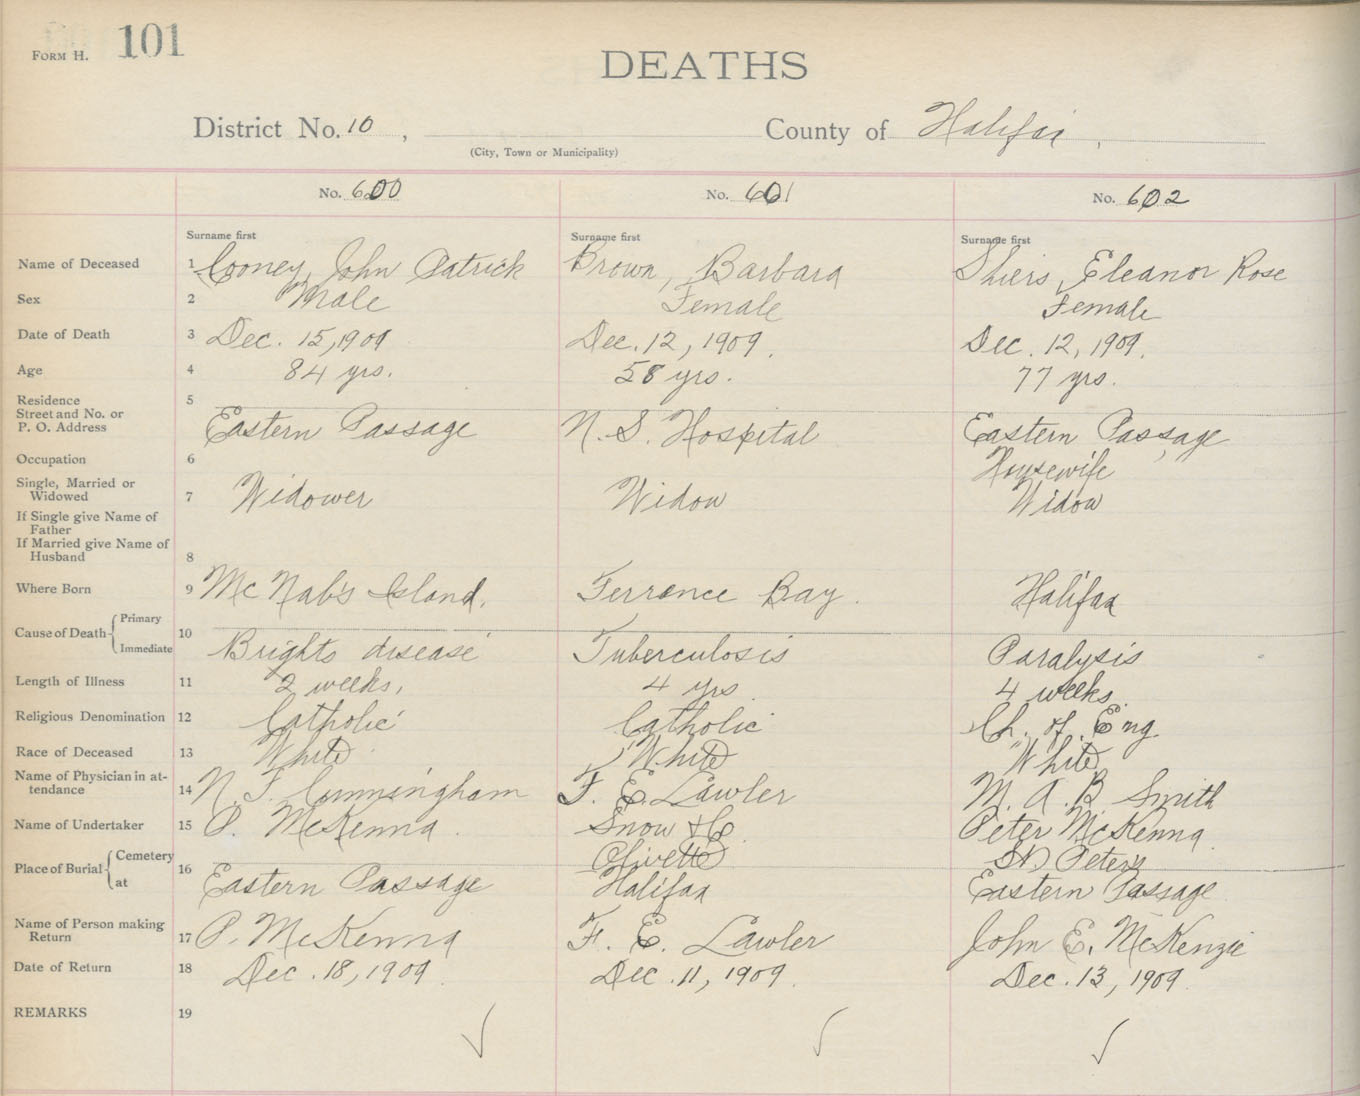 FORM H. 101
DEATHS
District No. 10 , County of Halifax ,
(City, Town or Municipality)
No. 600 No. 601 No. 602
Surname first Surname first Surname first
Name of Deceased 1 Cooney, John Patrick Brown, Barbara Shiers, Eleanor Rose
Sex 2 Male Female Female
Date of Death 3 Dec. 15, 1909 Dec. 12, 1909. Dec. 12, 1909.
Age 4 84 yrs. 58 yrs. 77 yrs.
Residence 5
Street and No. or
P. O. Address Eastern Passage N. S. Hospital Eastern Passage
Occupation 6 Housewife
Single, Married or
Widowed 7 Widower Widow Widow
If Single give Name of
Father
If Married give Name of
Husband 8
Where Born 9 McNab's Island. Terrence Bay. Halifax
Cause of Death Primary
10
Immediate Brights disease Tuberculosis Paralysis
Length of Illness 11 2 weeks, 4 yrs. 4 weeks.
Religious Denomination 12 Catholic Catholic Ch. of Eng.
Race of Deceased 13 White White White
Name of Physician in at-
tendance 14 N. F. Cunningham F. E. Lawler M. A. B. Smith
Name of Undertaker 15 P. McKenna. Snow & Co Peter McKenna.
Place of Burial Cemetery Olivette St Peters
16
at Eastern Passage Halifax Eastern Passage
Name of Person making
Return 17 P. McKenna F. E. Lawler John E. McKenzie
Date of Return 18 Dec. 18, 1909. Dec. 11, 1909. Dec. 13, 1909.
REMARKS 19